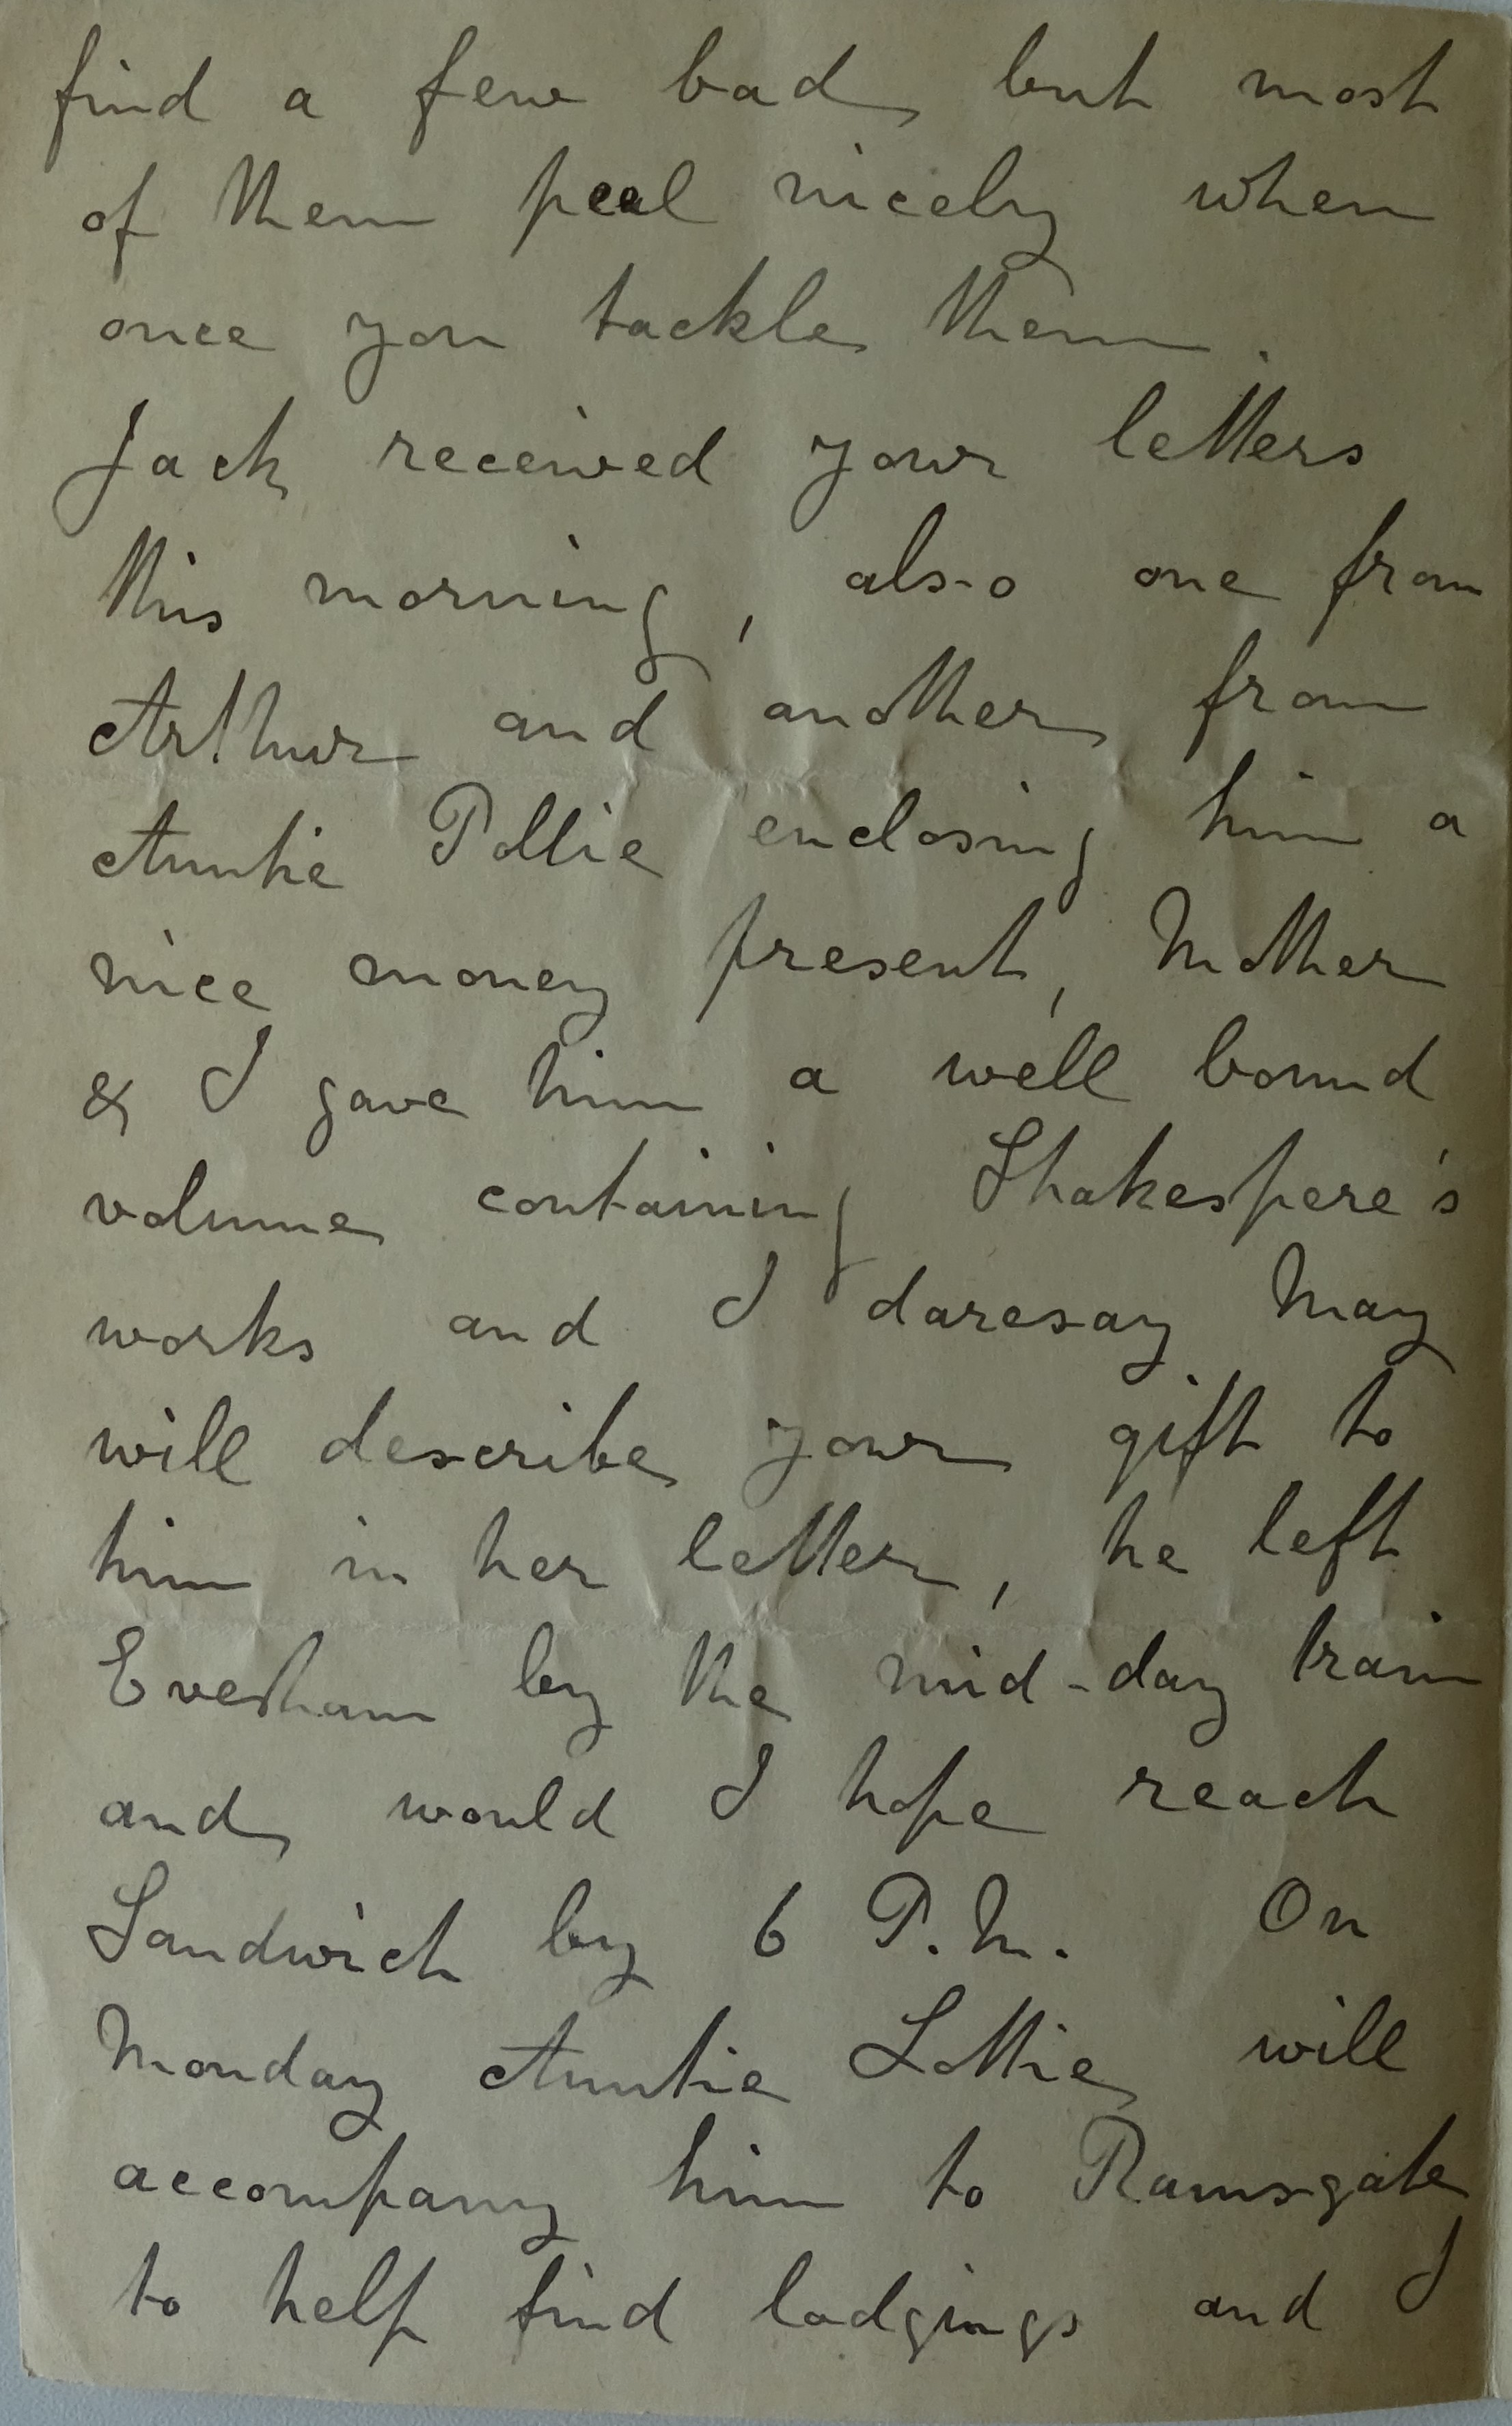 find a few bad but most
of them peal nicely when
once you tackle them.
Jack received your letters
this morning, also one from
Arthur and another from
Auntie Pollie enclosing him a
nice money present, Mother
& I gave him a well bound
volume containing Shakespere's
works and I daresay May
will describe your gift to
him in her letter, he left
Evesham by the mid-day train
and would I hope reach
Sandwich by 6 P.M. On
Monday Auntie Lottie will
accompany him to Ramsgate
to help find lodgings and I